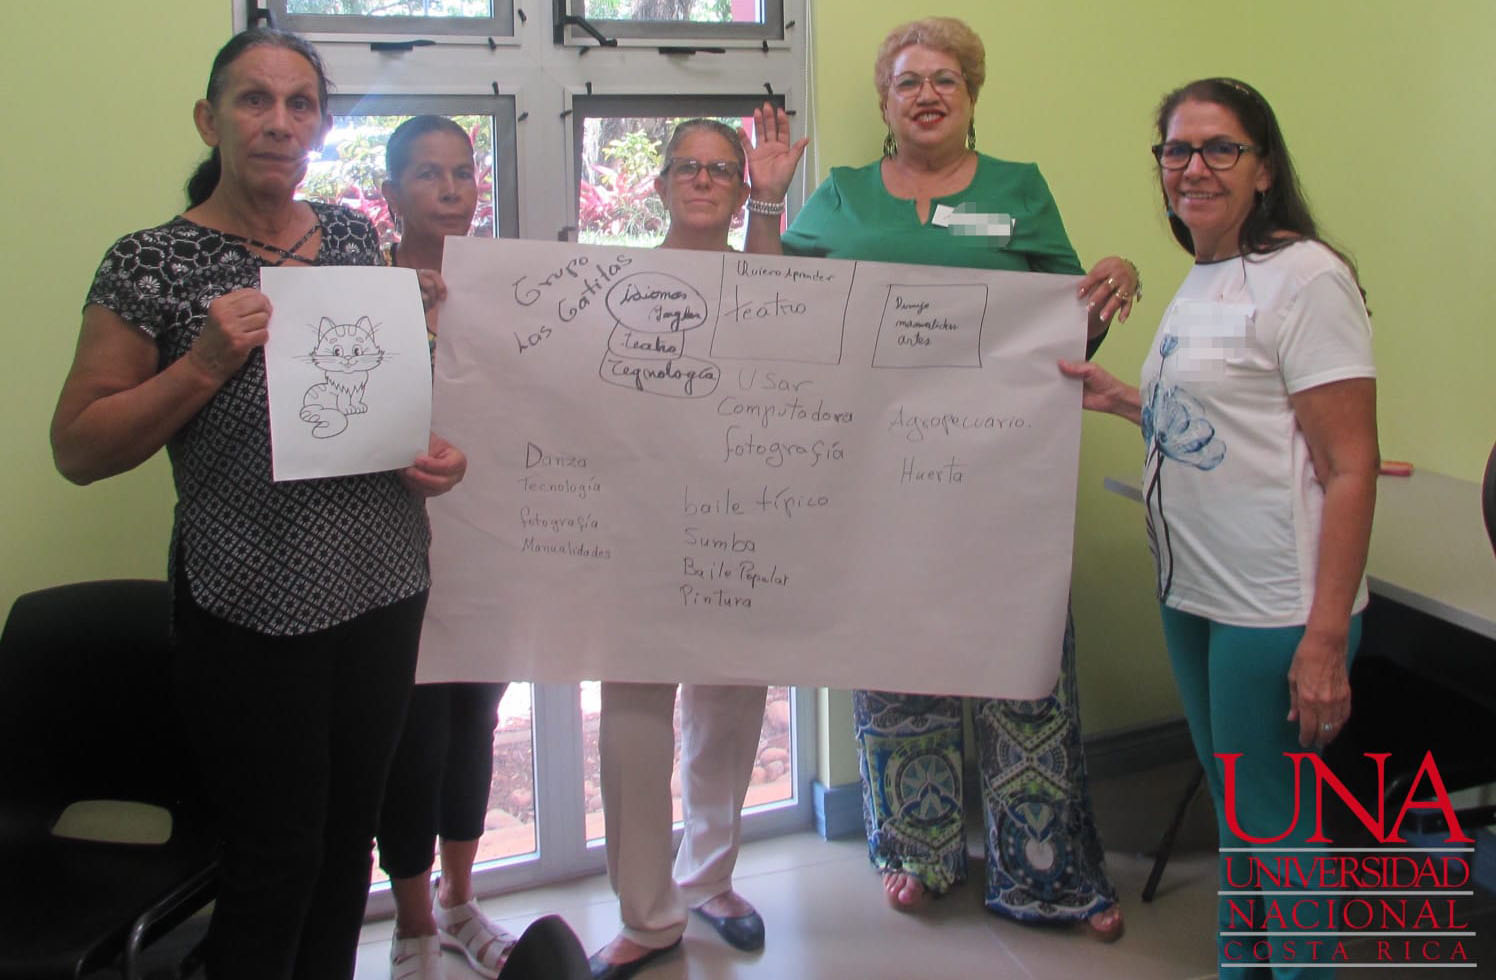 Grupo
Las Gatitas
idiomas
Ingles
Teatro
Tegnología
Quiero Aprender
teatro
Dibujo
manualides
artes
Usar
Computadora
fotografía
Agropecuario.
Huerta
Danza
Tecnología
fotografía
Manualidades
baile típico
Sumba
Baile Popular
Pintura
UNA
UNIVERSIDAD
NACIONAL
COSTA RICA